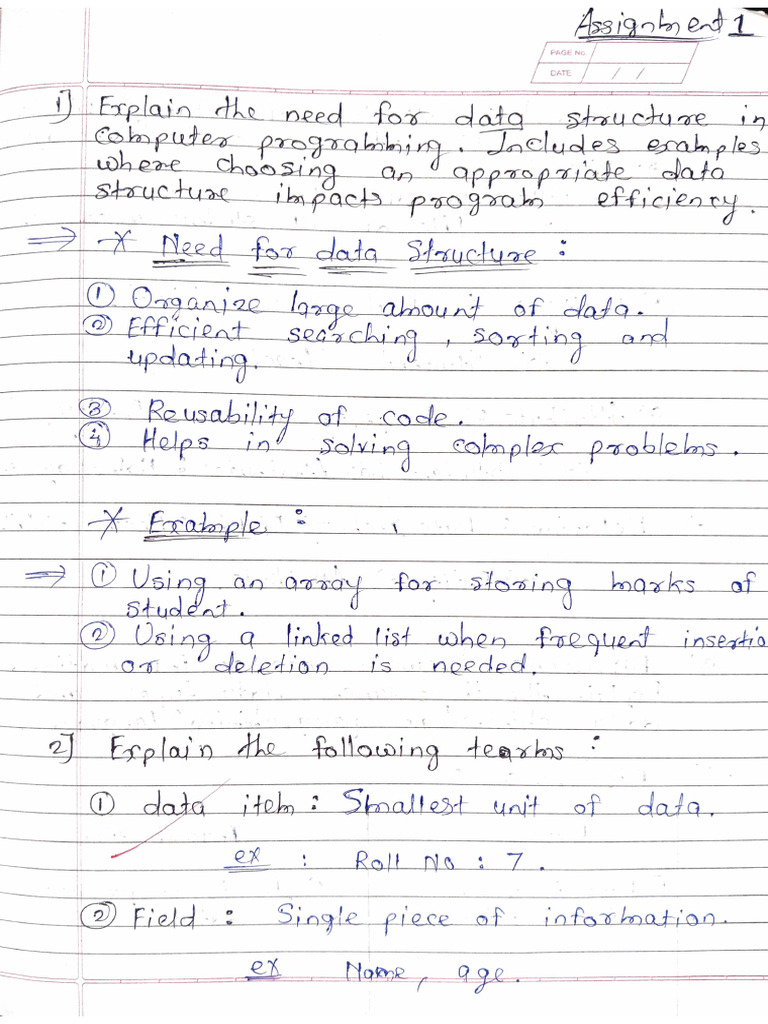 Assignment 1
PAGE No.
DATE / /
1] Explain the need for data structure in
computer programming. Includes examples
where choosing an appropriate data
structure impacts program efficiency.
⇒ * Need for data structure :
① Organize large amount of data.
② Efficient searching, sorting and
updating.
③ Reusability of code.
④ Helps in solving complex problems.
* Example :
⇒ ① Using an array for storing marks of
student.
② Using a linked list when frequent insertio
or deletion is needed.
2] Explain the following terms :
① data item : Smallest unit of data.
ex : Roll No : 7.
② Field : Single piece of information.
ex Name, age.